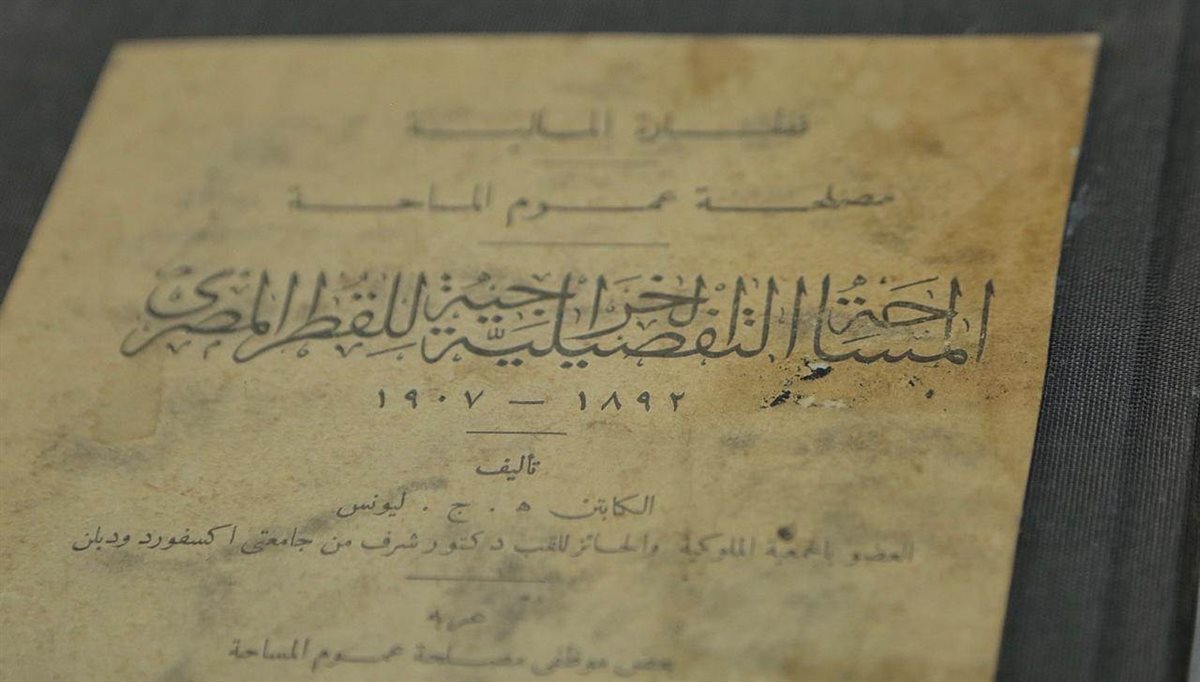 نظارة المالية
مصلحة عموم المساحة
المساحة التفصيلية الخراجية للقطر المصرى
١٨٩٢ – ١٩٠٧
تأليف
الكابتن ه . ج . ليونس
العضو بالجمعية الملوكية والحائز للقب دكتور شرف من جامعتى اكسفورد ودبلن
عربه
بعض موظفى مصلحة عموم المساحة